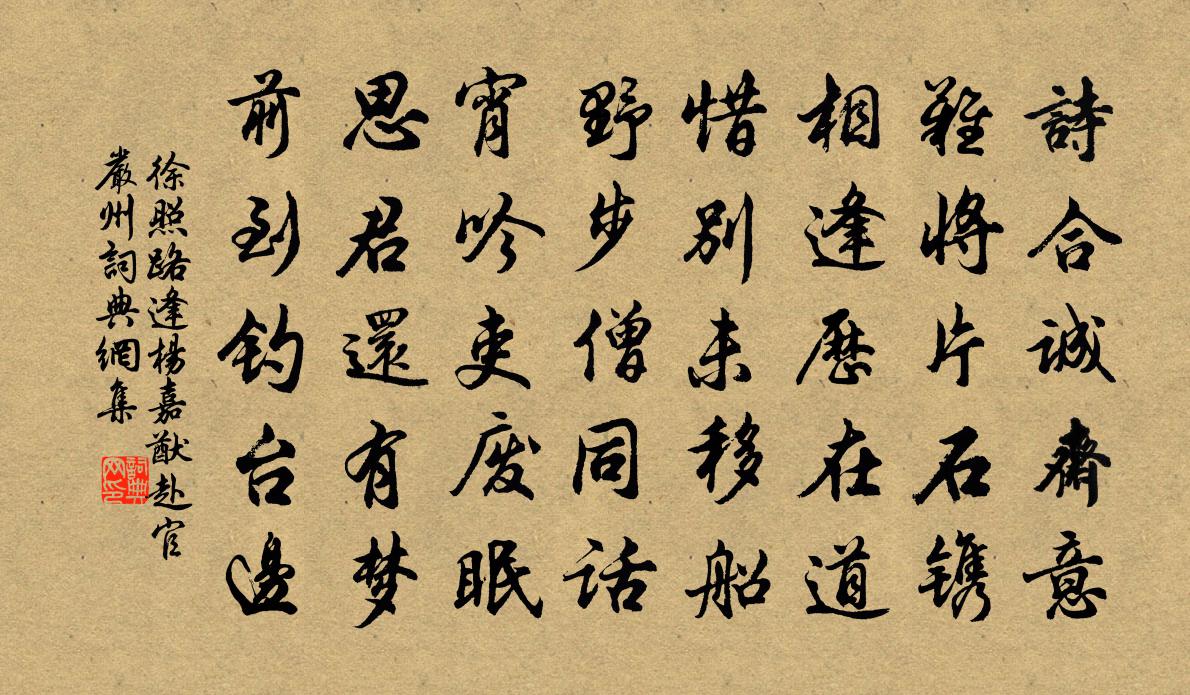 詩合誠齋意
難將片石镌
相逢歷在道
惜别未移船
野步僧同话
宵吟吏废眠
思君還有梦
前到钓台邊
徐照路逢楊嘉猷赴官
嚴州詞典網集
詞典
网印